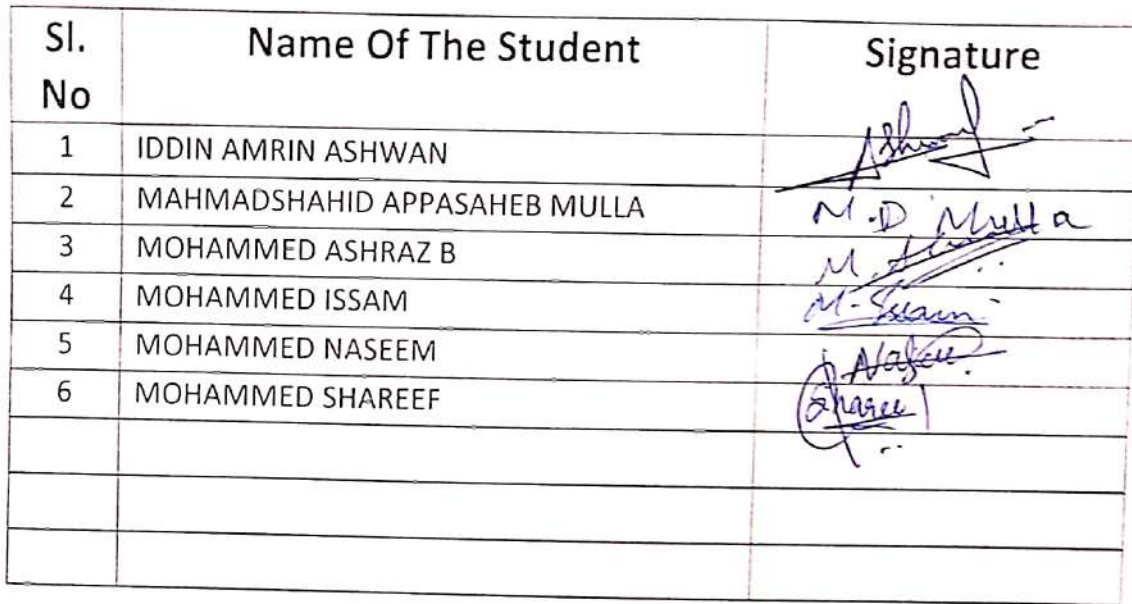 Sl. No Name Of The Student Signature
1 IDDIN AMRIN ASHWAN
2 MAHMADSHAHID APPASAHEB MULLA M.D Mulla
3 MOHAMMED ASHRAZ B
4 MOHAMMED ISSAM
5 MOHAMMED NASEEM
6 MOHAMMED SHAREEF